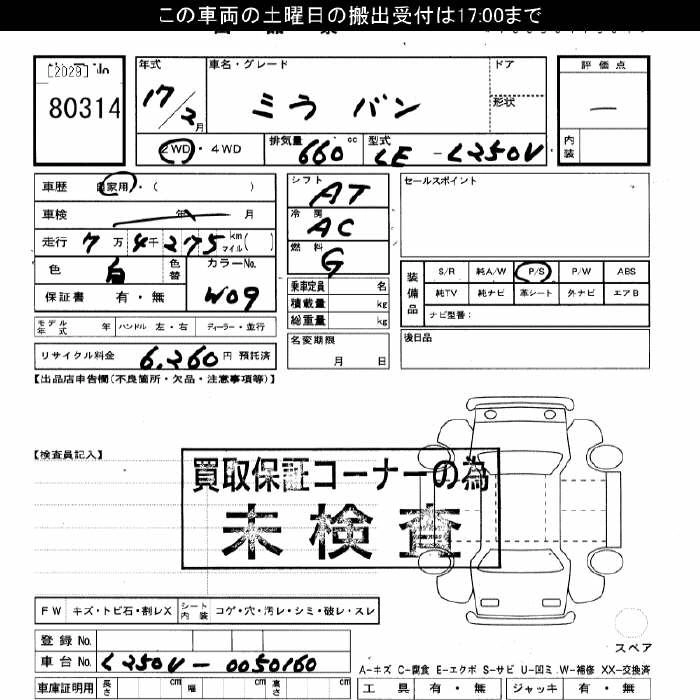 この車両の土曜日の搬出受付は17:00まで
[2029] No
80314
年式 車名・グレード ドア 評価点
17/2月 ミラ バン 形状 —
2WD・4WD 排気量 660 cc 型式 LE-L250V 内装
車歴 自家用・( )
車検 年 月
走行 7万4千275 km マイル( )
色 白 色替 カラーNo. W09
保証書 有・無
モデル年式 年 ハンドル 左・右 ディーラー・並行
リサイクル料金 6,260円 預託済
シフト AT
冷房 AC
燃料 G
乗車定員 名
積載量 kg
総重量 kg
名変期限 月 日
セールスポイント
装備品 S/R 純A/W P/S P/W ABS
純TV 純ナビ 革シート 外ナビ エアB
ナビ型番:
後日品
【出品店申告欄(不良箇所・欠品・注意事項等)】
【検査員記入】
買取保証コーナーの為
未検査
FW キズ・トビ石・割レX シート内装 コゲ・穴・汚レ・シミ・破レ・スレ
スペア
登録No.
車台No. L250V-0050160
A-キズ C-腐食 E-エクボ S-サビ U-凹ミ W-補修 XX-交換済
車庫証明用 長さ cm 幅 cm 高さ cm 工具 有・無 ジャッキ 有・無